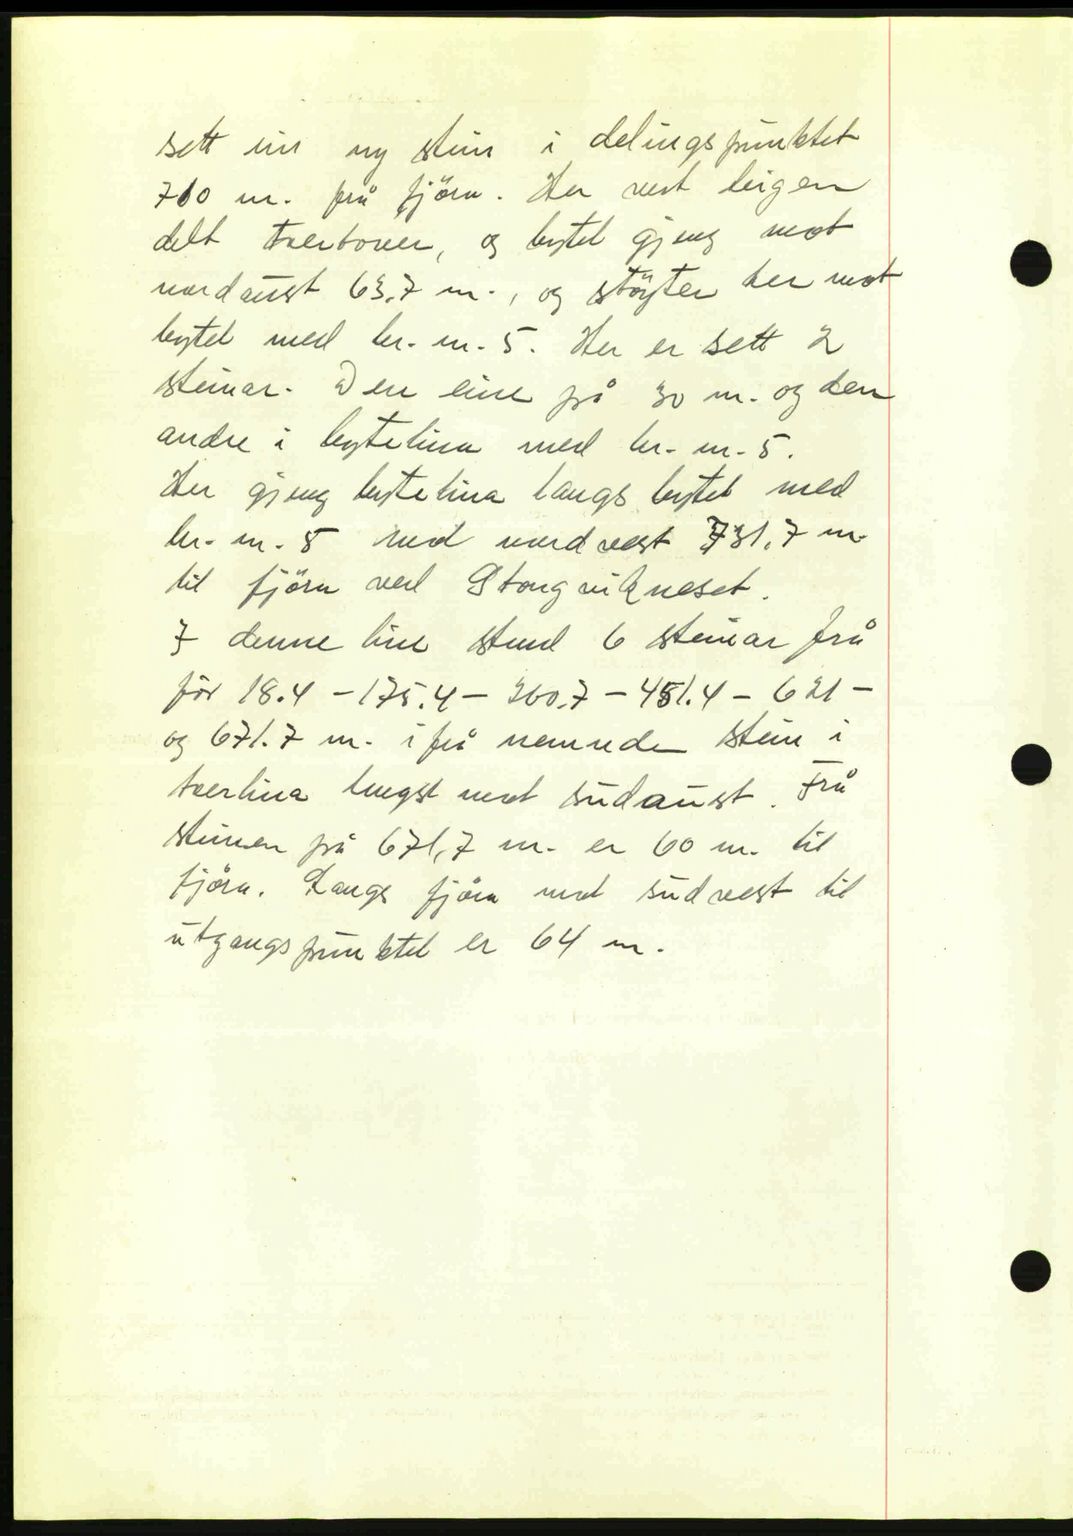 sett inn ny stein i delingspunktet
710 m. frå fjöra. Her vert teigen
delt tvertover, og bytet gjeng mot
nordaust 63.7 m., og stöyter her mot
bytet med br. nr. 5. Her er sett 2
steinar. Den eine på 30 m. og den
andre i bytelina med br. nr. 5.
Her gjeng bytelina langs bytet med
br. nr. 5 mot nordvest 731,7 m.
til fjöra ved Stangvikneset.
I denne line stend 6 steinar frå
för 18.4 – 175.4 – 260.7 – 451.4 – 621 –
og 671.7 m. ifrå nemnde stein i
tverlina lengst mot sudaust. Frå
steinen på 671,7 m. er 60 m. til
fjöra. Langs fjöra mot sudvest til
utgangspunktet er 64 m.